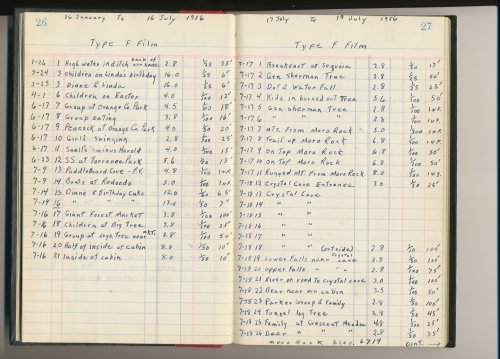 26
26 January To 16 July 1956
Type F Film
1-26 1 High water in ditch back of our home 2.8 1/25 35'
3-24 3 Children on Lindas Birthday 16.0 1/25 6'
1-25 3 Diane & Linda 16.0 1/25 6'
4-1 6 Children on Easter 4.0 1/100 12'
6-17 7 Group at Orange Co Park 4.5 1/50 18'
6-17 8 Group eating 3.8 1/100 16'
6-17 9 Peacock at Orange Co Park 4.0 1/50 20'
6-17 10 Girls Swinging 2.8 1/100 25'
6-17 11 Snells minus Harold 4.0 1/100 15'
6-23 12 S.S. at Torrance Park 5.6 1/50 15'
7-9 13 Paddle Board Cove - P.V. 4.8 1/100 Inf.
7-9 14 Boats at Redondo 5.0 1/100 Inf.
7-14 15 Diane & Birthday Cake 12.0 1/50 6.5'
7-14 16 " " " 13.0 1/50 7'
7-16 17 Giant Forest Market 3.8 1/100 100'
7-16 18 Children at Big Tree 3.8 1/100 25'
7-16 19 Group at Sequ tree 2.8 1/100 50'
7-16 20 Half of inside of cabin 8.0 1/50 10'
7-16 21 Inside of cabin 8.0 10'
27
17 July To 19 July 1956
Type F Film
7-17 1 Breakfast at Sequoia 2.8 1/50 17'
7-17 2 Gen Sherman Tree 2.8 1/25 50'
7-17 3 D of L Water Fall 2.8 1/25 25'
7-17 4 Kids in burned out Tree 5.6 1/100 50'
7-17 5 Gen Sherman Tree 2.8 1/100 Inf.
7-17 6 " " " 2.8 1/100 Inf.
7-17 7 Mts. From Moro Rock 5.0 1/100 Inf.
7-17 8 Trail up Moro Rock 6.8 1/100 Inf.
7-17 9 On Top Moro Rock 6.8 1/100 50'
7-17 10 On Top Moro Rock 6.8 1/100 50'
7-17 11 Rugged Mt. From Moro Rock 8.0 1/100 Inf.
7-18 12 Crystal Cave Entrance 3.0 1/50 25'
7-18 13 Crystal Cave
7-18 14 " "
7-18 15 " "
7-18 16 " "
7-18 17 " "
7-18 18 " " (outside) 2.8 1/50 100'
7-18 19 Lower Falls near Crystal Cave 2.8 1/50 100'
7-18 20 Upper Falls " " 2.8 1/100 75'
7-18 21 River on road to Crystal Cave 3.0 1/100 100'
7-18 22 Bear near our cabin 3.5 1/100 50'
7-18 23 Parker Group & Family 2.8 1/50 100'
7-18 24 Tunnel log Tree 2.8 1/50 45'
7-18 25 Family at Crescent Meadow 4.8 1/100 50'
7-18 26 Deer " " 2.8 1/50 35'
Moro Rock Elev. 6719 cont. →